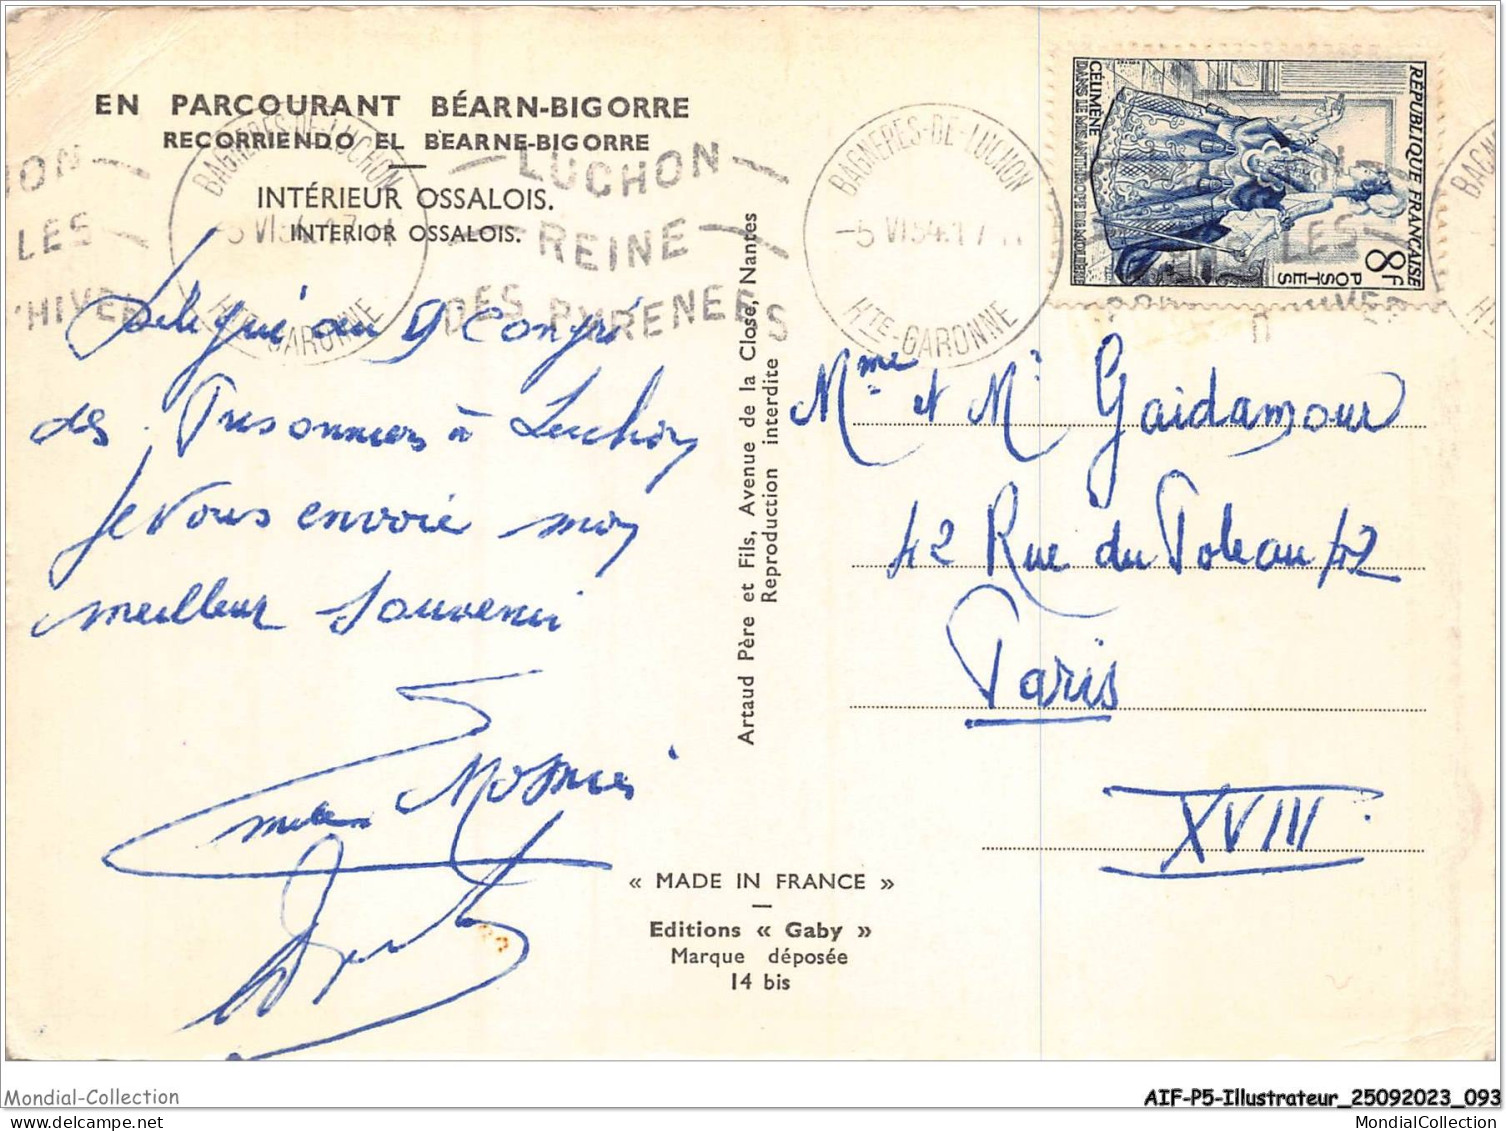 EN PARCOURANT BÉARN-BIGORRE
RECORRIENDO EL BEARNE-BIGORRE
INTÉRIEUR OSSALOIS.
INTERIOR OSSALOIS.
BAGNERES-DE-LUCHON
-5 VI 54.17
HTE-GARONNE
LUCHON
REINE
DES PYRENEES
BAGNERES-DE-LUCHON
-5 VI 54.17
HTE-GARONNE
REPUBLIQUE FRANÇAISE
8F
POSTES
CÉLIMÈNE
DANS LE MISANTHROPE DE MOLIÈRE
au congré
des Prisonniers à Luchon
Je vous envoie mon
meilleur souvenir
Artaud Père et Fils, Avenue de la Close, Nantes
Reproduction interdite
Mme et Mr Gaidamour
42 Rue du Poteau 42
Paris
XVIII
« MADE IN FRANCE »
Editions « Gaby »
Marque déposée
14 bis
Mondial-Collection
AIF-P5-Illustrateur_25092023_093
MondialCollection